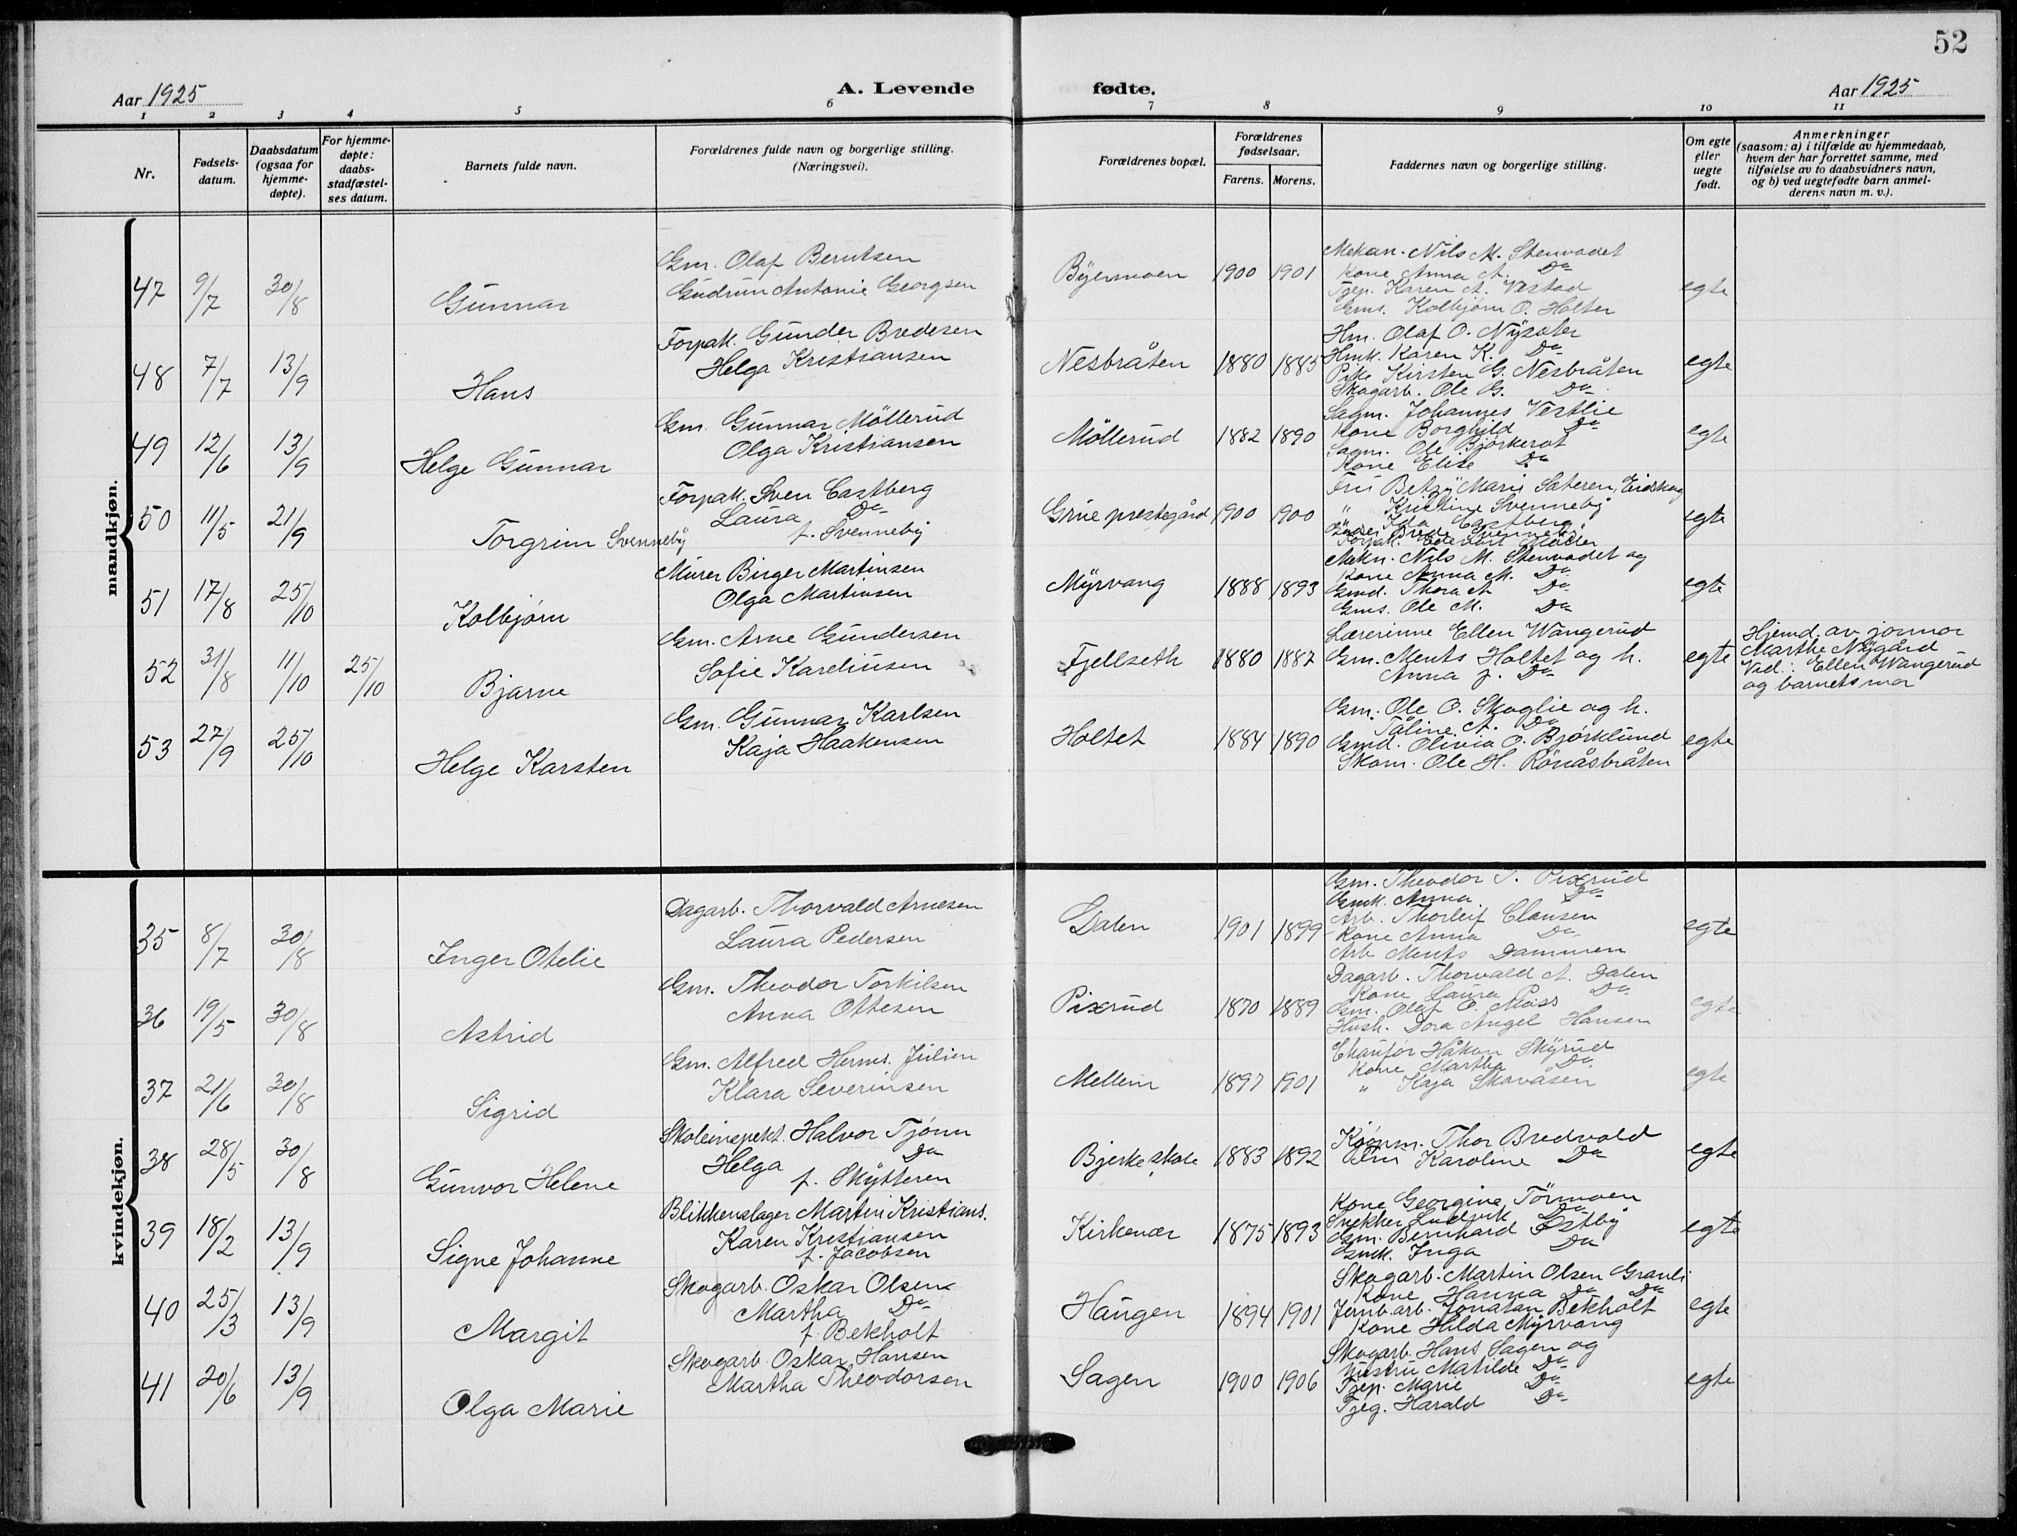 52
Aar 1925
A. Levende
fødte.
Aar 1925
1 2 3 4 5 6 7 8 9 10 11
Nr.
Fødsels-
datum.
Daabsdatum
(ogsaa for
hjemme-
døpte).
For hjemme-
døpte:
daabs-
stadfæstel-
ses datum.
Barnets fulde navn.
Forældrenes fulde navn og borgerlige stilling.
(Næringsvei).
Forældrenes bopæl.
Forældrenes
fødselsaar.
Farens. Morens.
Faddernes navn og borgerlige stilling.
Om egte
eller
uegte
født.
Anmerkninger
(saasom: a) i tilfælde av hjemmedaab,
hvem der har forrettet samme, med
tilføielse av to daabsvidners navn,
og b) ved uegtefødte barn anmel-
derens navn m. v.).
mandkjøn.
47 9/7 30/8 Gunnar
Gm. Olaf Berntsen
Gudrun Antonie Georgsen
Byermoen 1900 1901
Mekan. Nils M. Stenvadet
Kone Anna A. Do
Tjep. Karen A. Vestad
Gms. Kolbjørn O. Holter
egte
48 7/7 13/9 Hans
Forpak. Gunder Bredesen
Helga Kristiansen
Nesbråten 1880 1885
Hm. Olaf O. Nysæter
Hmk. Karen K. Do
Pike Kirsten G. Nesbråten
Skogarb. Ole G. Do
egte
49 12/6 13/9 Helge Gunnar
Gm. Gunnar Möllerud
Olga Kristiansen
Möllerud 1882 1890
Sagm. Johannes Vestlie
Kone Borghild Do
Sagm. Ole Bjørkerot
Kone Elise Do
egte
50 11/5 21/9 Torgrim Svenneby
Forpak. Sven Castberg
Laura Do
f. Svenneby
Grue prestegård 1900 1900
Fru Betzy Marie Sateren, Eidskog
" Kristine Svenneby
" Ida Castberg
Forpak. Edevart
egte
51 17/8 25/10 Kolbjørn
Murer Birger Martinsen
Olga Martinsen
Myrvang 1888 1893
Mekn. Nils M. Stenvadet og
Kone Anna M. Do
Gmd. Thora A Do
Gms. Ole M. Do
egte
52 31/8 11/10 25/10 Bjarne
Gm. Arne Gundersen
Sofie Kareliusen
Fjellseth 1880 1887
Lærerinne Ellen Wangerud
Gm. Ments Holtet og h.
Anna J. Do
egte
Hjemd. av jormor
Marthe Nygård
Vid: Ellen Wangerud
og barnets mor
53 27/9 25/10 Helge Karsten
Gm. Gunnar Karlsen
Kaja Haakensen
Holtet 1884 1890
Gm. Ole O. Skoglie og h.
Taline A. Do
Gmd. Olivia O. Bjørklund
Skom. Ole H. Rönåsbråten
egte
kvindekjøn.
35 8/7 30/8 Inger Otelie
Dagarb. Thorvald Arnesen
Laura Pedersen
Dalen 1901 1899
Gm. Theodor T. Pixrud
Gmk. Anna Do
Arb. Thorleif Clausen
Kone Anna Do
Arb Ments Dammen
egte
36 19/5 30/8 Astrid
Gm. Theodor Torkilsen
Anna Ottesen
Pixrud 1870 1889
Dagarb. Thorvald A. Dalen
Kone Laura Do
Gm. Olaf O. Moss
Hush. Dora Angel Hansen
egte
37 21/6 30/8 Sigrid
Gm. Alfred Herms. Julien
Klara Severinsen
Mellem 1897 1901
Chaufør Håkon Skyrud
Kone Martha Do
" Kaja Skovåsen
egte
38 28/5 30/8 Gunvor Helene
Skoleinspekt. Halvor Tjönn
Helga Do
f. Skytteren
Bjerke skole 1883 1892
Kjøpm. Thor Bredvold
Fru Karoline Do
egte
39 18/2 13/9 Signe Johanne
Blikkenslager Martin Kristians.
Karen Kristiansen
f. Jacobsen
Kirkenær 1875 1893
Kone Georgine Törmoen
Snekker Ludvik Do
Gm. Bernhard Østby
Gmk. Inga Do
egte
40 25/3 13/9 Margit
Skogarb. Oskar Olsen
Martha Do
f. Bekholt
Haugen 1894 1901
Skogarb. Martin Olsen Granli
Kone Hanna Do Do
Jernb.arb. Jonatan Bekholt
Kone Hilda Myrvang
egte
41 20/6 13/9 Olga Marie
Skogarb. Oskar Hansen
Martha Theodorsen
Sagen 1900 1906
Skogarb. Hans Sagen og
Hustru Matilde Do
Tjep. Marie Do
Tjeg. Harald Do
egte